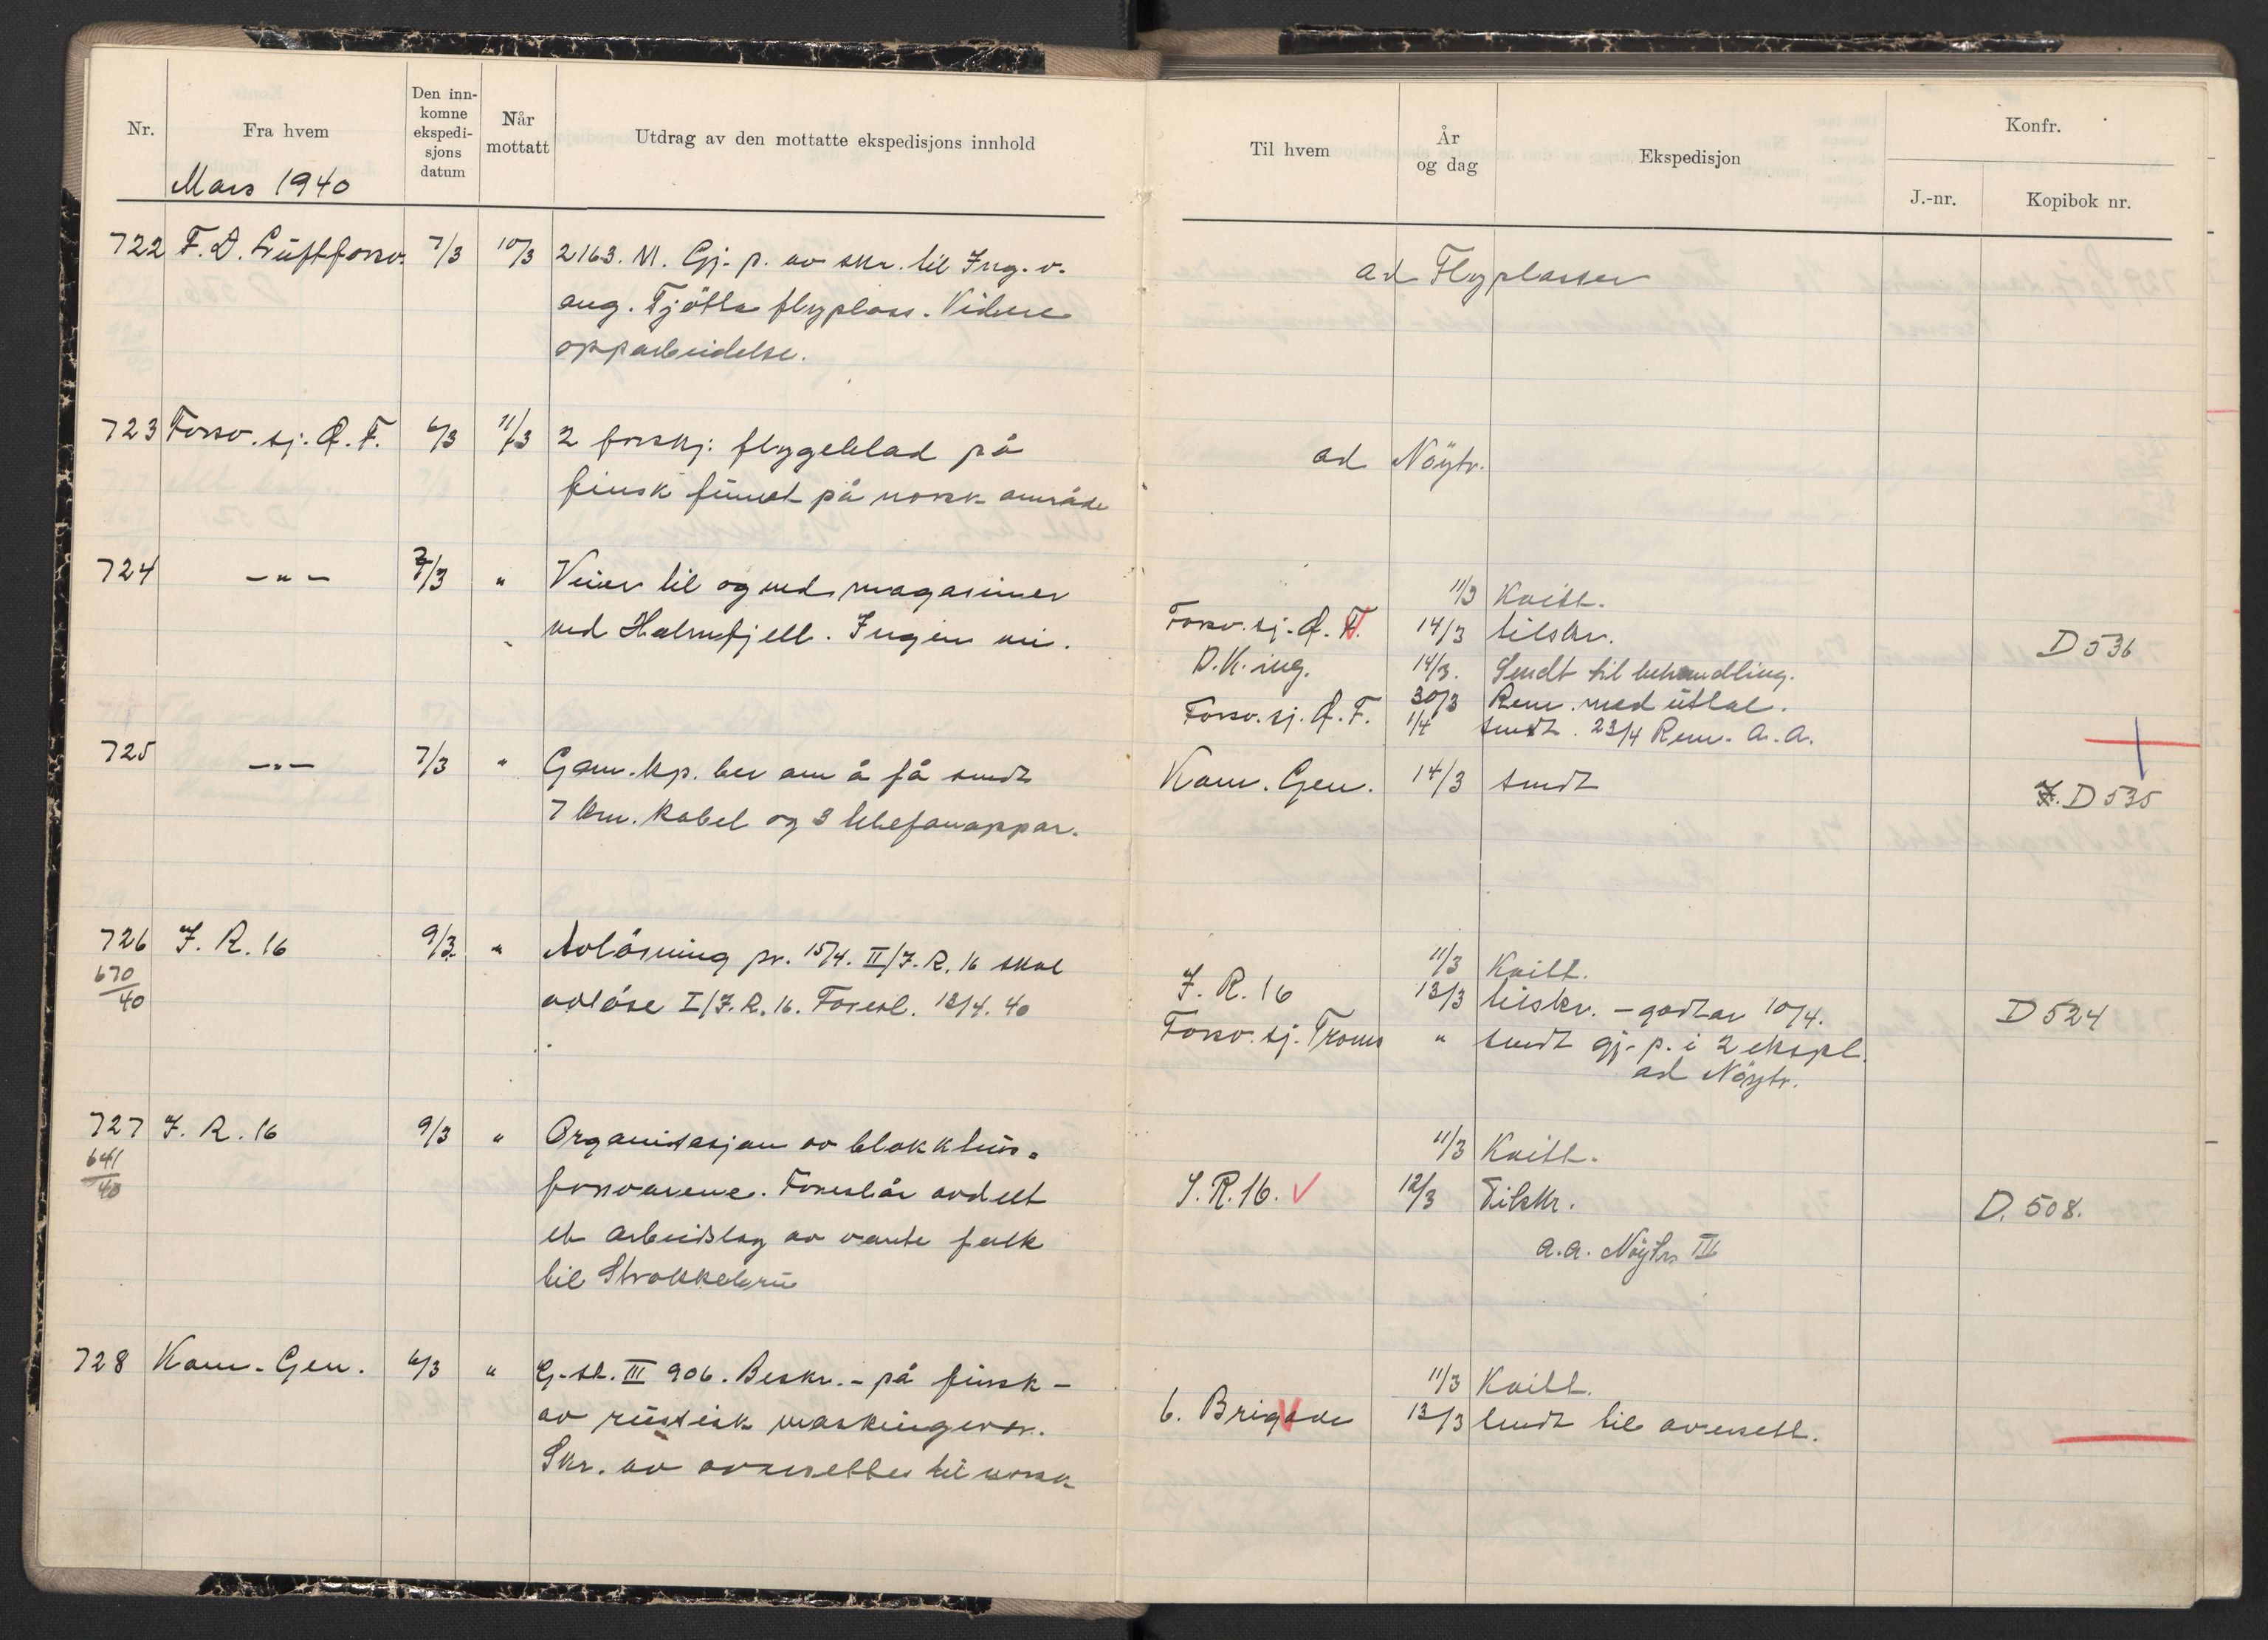 Nr.
Fra hvem
Den inn-
komne
ekspedi-
sjons
datum
Når
mottatt
Utdrag av den mottatte ekspedisjons innhold
Mars 1940
722 F.D. Luftforsv. 7/3 10/3 2163. M. Gj. p. av skr. til Ing. v.
ang. Tjötta flyplass. Videre
opparbeidelse.
723 Forsv. sj. Ø. F. 6/3 11/3 2 forskj: flygeblad på
finsk funnet på norsk område
724 — " — 7/3 " Veier til og ved magasiner
ved Holmfjell. Ingen vei.
725 — " — 7/3 " Gam. kp. ber om å få sendt
7 km. kabel og 3 telefonappar.
726 I. R. 16 9/3 " Avlösning pr. 15/4. II/I.R. 16 skal
670
40
avlöse I/I.R. 16. Foresl. 12/4. 40
727 I. R. 16 9/3 " Organisasjon av blokkhus-
641
40
forsvarene. Foreslår avdelt
et arbeidslag av vante folk
til Strokkebru
728 Kom. Gen. 6/3 " G.-st. III 906. Beskr. - på finsk -
av russisk maskingever.
Skr. av oversettes til norsk
Til hvem
År
og dag
Ekspedisjon
Konfr.
J.-nr.
Kopibok nr.
ad Flyplasser
ad Nöytr.
11/3 Kvitt.
Forsv. sj. Ø. F. 14/3 tilskr. D 536
D.K. ing. 14/3. Sendt til behandling.
30/3 Rem. med uttal.
Forsv. sj. Ø. F. 1/4 sendt. 23/4 Rem. a. a.
Kom. Gen. 14/3 sendt D 535
11/3 Kvitt.
I. R. 16 13/3 tilskr. - godtar 10/4. D 524
Forsv. sj. Troms " sendt gj. p. i 2 ekspl.
ad Nöytr.
11/3 Kvitt.
I. R. 16. 12/3 Tilskr. D. 508.
a. a. Nöytr. IV
11/3 Kvitt.
6. Brigade 13/3 sendt til oversett.